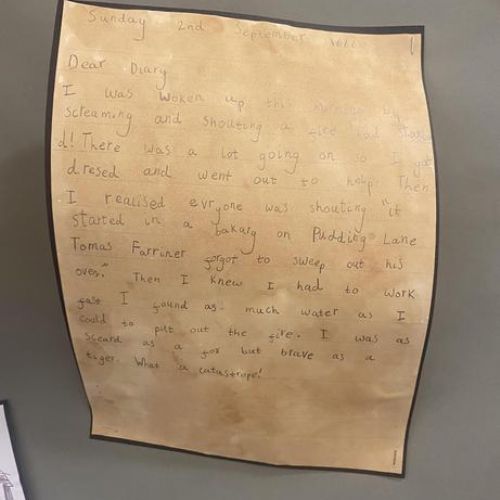 Sunday 2nd September
Dear Diary
I was woken up this morning by
screaming and shouting a fire had starte
d! There was a lot going on so I got
dresed and went out to help. Then
I realised evryone was shouting "it
started in a bakary on Pudding Lane
Tomas Farriner forgot to sweep out his
oven." Then I knew I had to work
fast I found as much water as I
could to put out the fire. I was as
sceard as a fox but brave as a
tiger. What a catastrope!